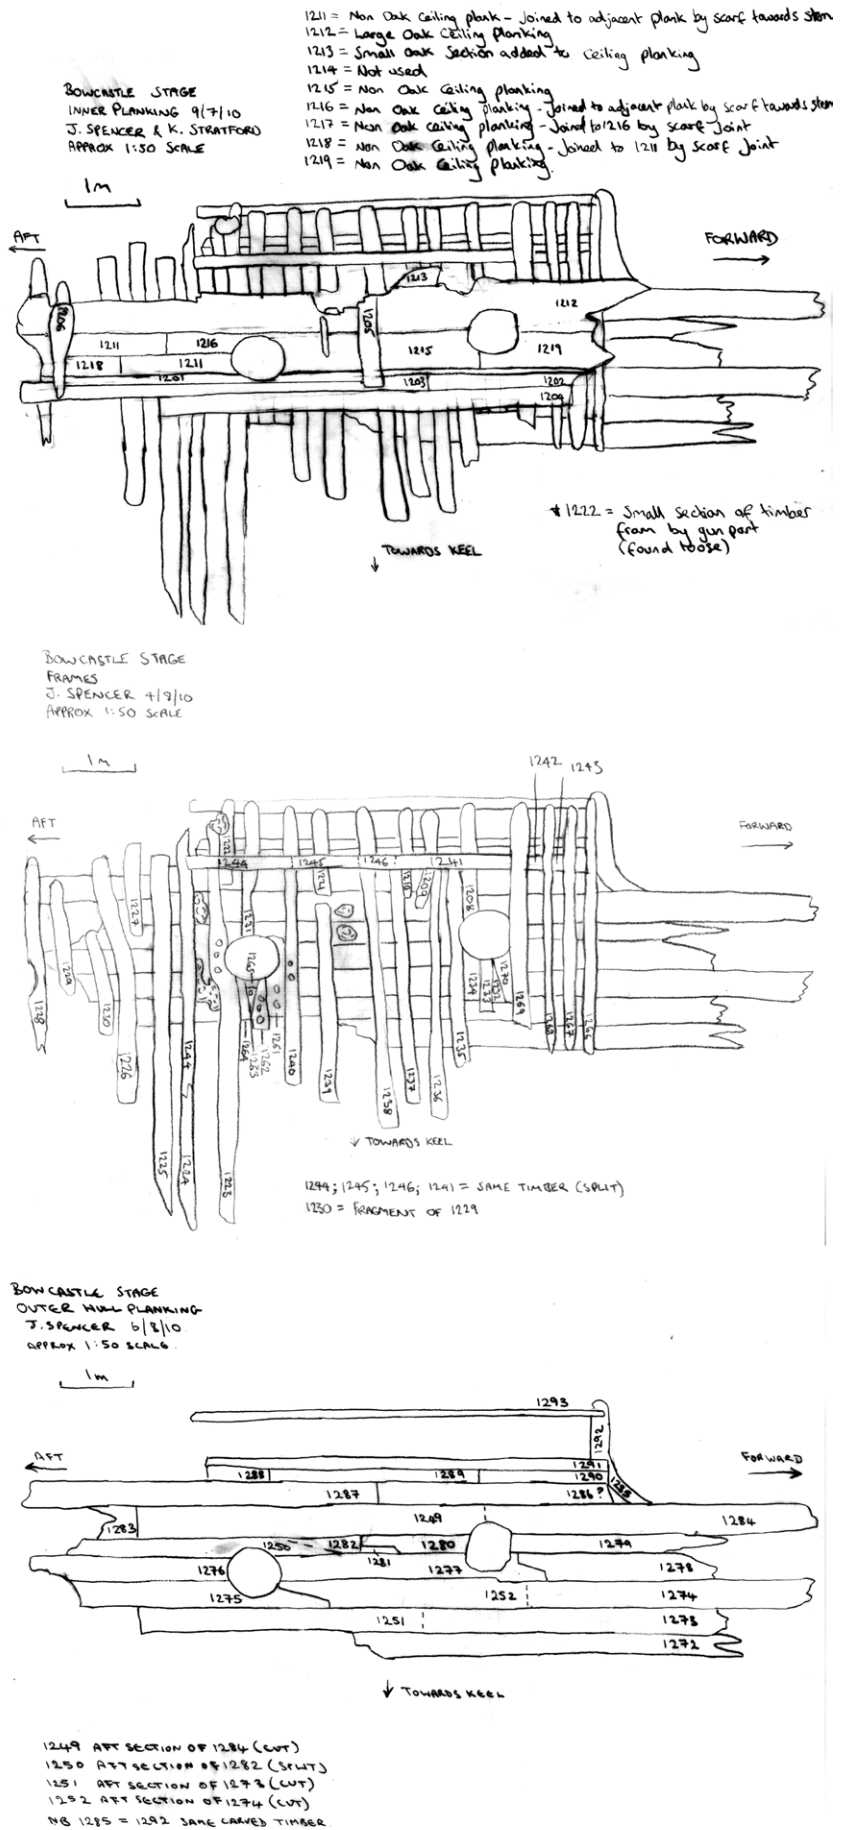 1211 = Non Oak Ceiling plank - Joined to adjacent plank by scarf towards stern
1212 = Large Oak Ceiling Planking
1213 = Small Oak Section added to Ceiling planking
1214 = Not used
1215 = Non Oak Ceiling planking
1216 = Non Oak Ceiling planking - Joined to adjacent plank by scarf towards stern
1217 = Non Oak Ceiling planking - Joined to 1216 by scarf Joint
1218 = Non Oak Ceiling planking - Joined to 1211 by scarf Joint
1219 = Non Oak Ceiling planking.
BOWCASTLE STAGE
INNER PLANKING 9/7/10
J. SPENCER & K. STRATFORD
APPROX 1:50 SCALE
1m
AFT
FORWARD
1213
1212
1206
1205
1211 1216
1215 1219
1218 1211
1201 1203 1202
1204
* 1222 = Small section of timber
from by gun port
(found loose)
TOWARDS KEEL
BOWCASTLE STAGE
FRAMES
J. SPENCER 4/8/10
APPROX 1:50 SCALE
1m
1242 1243
AFT
FORWARD
1244 1245 1246 1241
1221
1210
1209
1208
1227
1229
1228
1230
1226
1265
1234
1233
1232
1270
1269
1268
1267
1266
1264
1263
1262
1261
1240
1239
1238
1237
1236
1235
1225
1224
1223
TOWARDS KEEL
1244; 1245; 1246; 1241 = SAME TIMBER (SPLIT)
1230 = FRAGMENT OF 1229
BOWCASTLE STAGE
OUTER HULL PLANKING
J. SPENCER 6/8/10
APPROX 1:50 SCALE.
1m
1293
1292
AFT
FORWARD
1291
1288 1289 1290
1287 1286? 1285
1249 1284
1283
1250 1282 1280 1279
1281
1276 1277 1278
1275 1252 1274
1251 1273
1272
TOWARDS KEEL
1249 AFT SECTION OF 1284 (CUT)
1250 AFT SECTION OF 1282 (SPLIT)
1251 AFT SECTION OF 1273 (CUT)
1252 AFT SECTION OF 1274 (CUT)
NB 1285 = 1292 SAME CARVED TIMBER